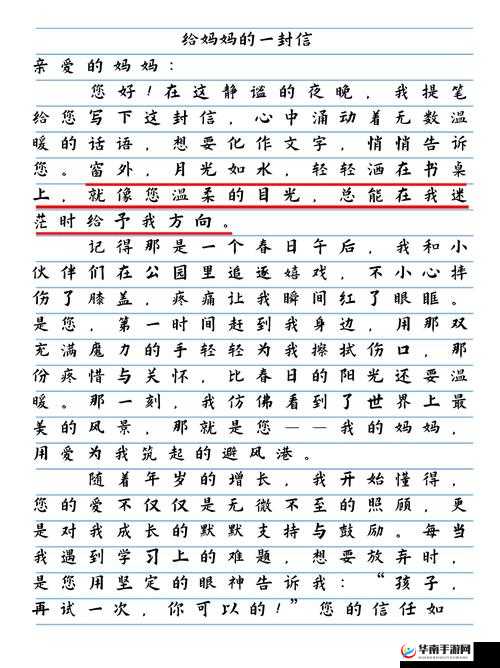 给妈妈的一封信
亲爱的妈妈：
您好！在这静谧的夜晚，我提笔
给您写下这封信，心中涌动着无数温
暖的话语，想要化作文字，悄悄告诉
您。窗外，月光如水，轻轻洒在书桌
上，就像您温柔的目光，总能在我迷
茫时给予我方向。
记得那是一个春日午后，我和小
伙伴们在公园里追逐嬉戏，不小心摔
伤了膝盖，疼痛让我瞬间红了眼眶。
是您，第一时间赶到我身边，用那双
充满魔力的手轻轻为我擦拭伤口，那
份疼惜与关怀，比春日的阳光还要温
暖。那一刻，我仿佛看到了世界上最
美的风景，那就是您——我的妈妈，
用爱为我筑起的避风港。
随着年岁的增长，我开始懂得，
您的爱不仅仅是无微不至的照顾，更
是对我成长的默默支持与鼓励。每当
我遇到学习上的难题，想要放弃时，
是您用坚定的眼神告诉我：“孩子，
再试一次，你可以的！”您的信任如
华南手游网